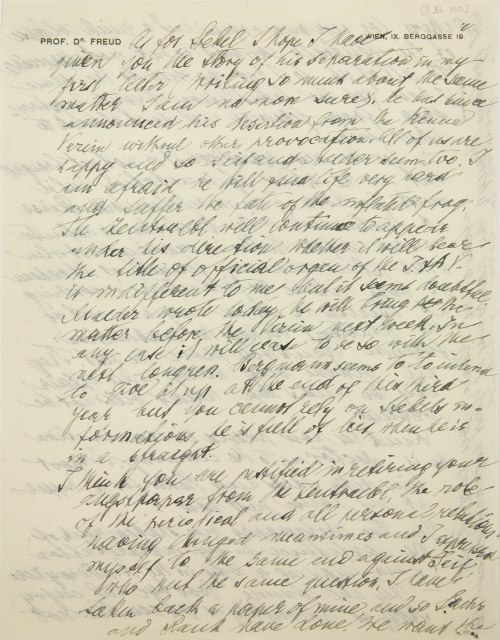 [3. XI. 1912]
PROF. DR. FREUD
WIEN, IX. BERGGASSE 19.
As for Stekel I hope I have
given you the story of his separation in my
first letter (writing so much about the same
matter I am no more sure). He had since
announced his desertion from the Vienna
Verein without other provocation. All of us are
happy and so and too. I
am afraid he will find life very hard
and suffer the fate of the inflated frog.
The Zentralbl will continue to appear
under his direction whether it will bear
the title of official organ of the
is indifferent to me but it seems doubtful.
wrote today he will bring the
matter before the Verein next week. In
any case it will cease to be so with the
next congress. Bergmann seems to to intend
to give it up at the end of this third
year but you cannot rely on Stekels in-
formations, he is full of lies when he is
in a straight.
I think you are justified in retiring your
paper from the Zentralbl, the role
of the periodical and all personal relations
having changed meantimes and I expressed
myself to the same end against
who put the same question. I have
taken back a paper of mine and so Sachs
and Rank have done. We want the